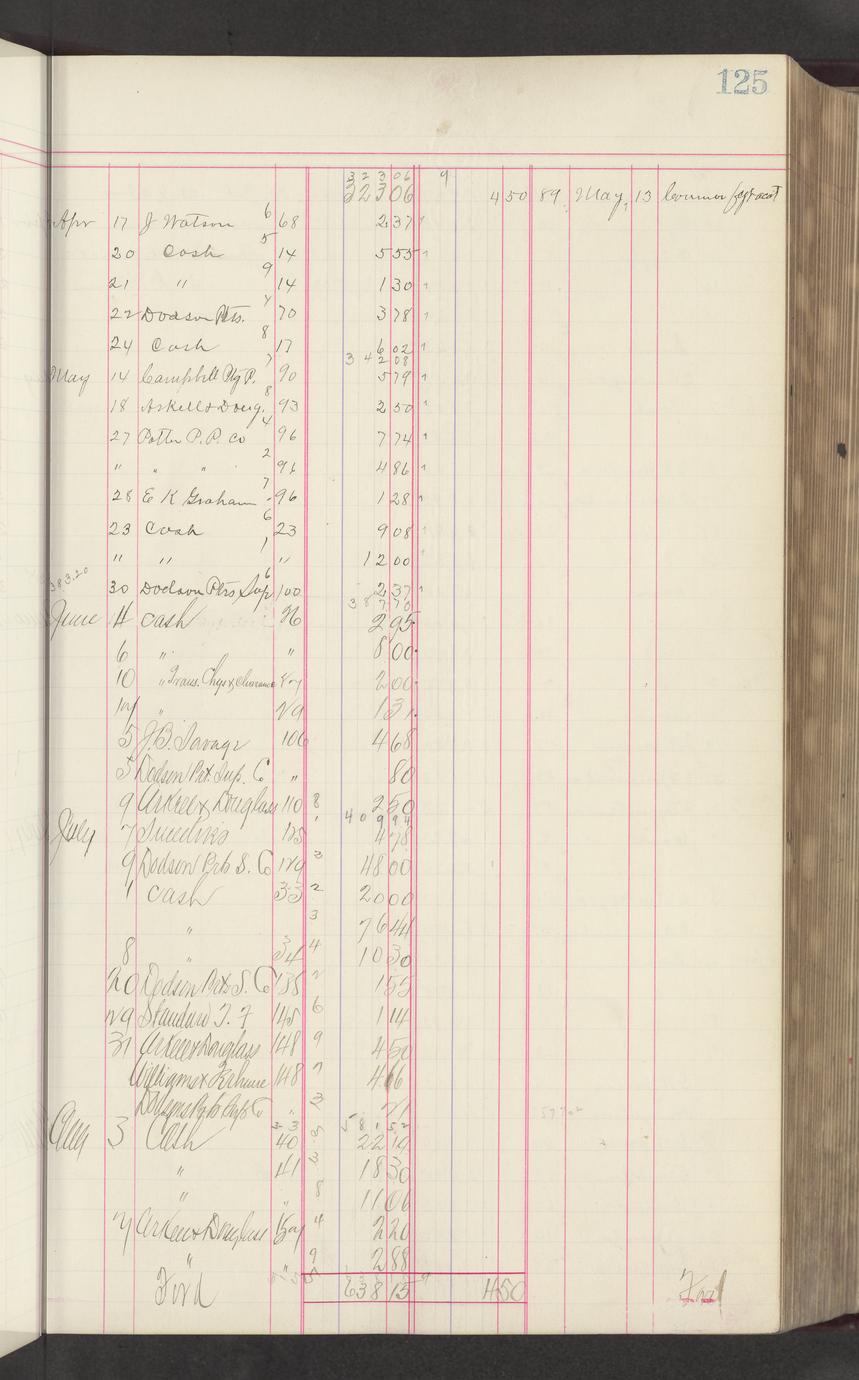 125
32306 9
32306 450 89 May 13
Apr 17 J Watson 6 68 237
20 Cash 5 14 555
21 " 9 14 130
22 Dodson Ptrs. 4 70 378
24 Cash 8 17 602
34208
May 14 Campbell Ptg P. 7 90 579
18 Arkell & Doug. 8 93 250
27 Potter P.P. Co 4 96 774
" " " 2 96 486
28 E K Graham 7 96 128
23 Cash 6 23 908
" " 1 " 1200
383.20
30 Dodson Ptrs Sup 6 100 237
38770
June 4 Cash 26 295
6 " " 800
10 " Trans. Chgs & Clearance 27 200
14 " 29 131
5 J.B. Savage 106 468
5 Dodson Prt. Sup. Co " 80
9 Arkell & Douglass 110 8 250
40994
July 7 125 478
9 Dodson Prtr S. Co 129 3 4800
1 Cash 33 2 2000
" 3 7641
8 " 34 4 1030
20 Dodson Prtrs S. Co 135 2 155
29 Standard T. F 145 6 114
31 Arkell & Douglass 148 9 450
Williams & 148 7 466
Dodsons Prtrs Sup Co " 3 21
58152
57702
Aug 3 Cash 40 2219
" 41 3 1830
" " 8 1106
7 Arkell & Douglass 157 4 220
" " 9 288
Ford 63815 450 Ford